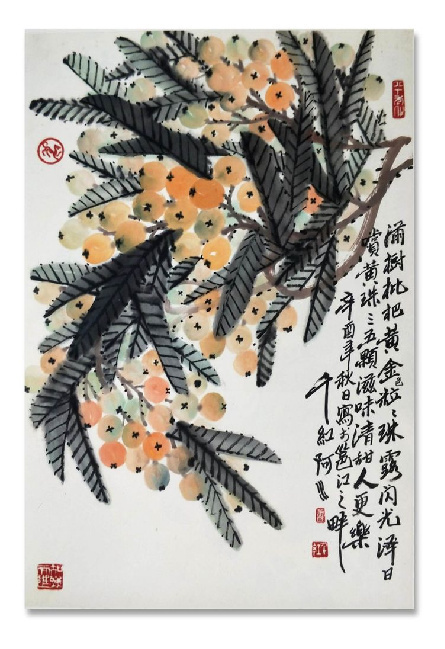 满樹枇杷黄金色粒々珠露闪光泽日
赏黄珠三五顆滋味清甜人更樂
辛酉年秋日寫於邕江之畔
千紅阿